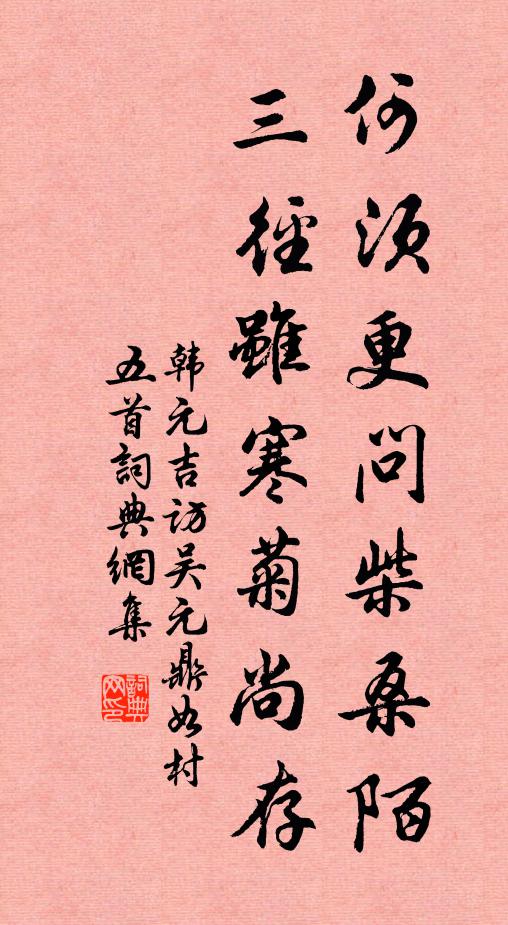 何须更问柴桑陌
三径虽寒菊尚存
韩元吉访吴元鼎如村
五首词典网集
词典网印